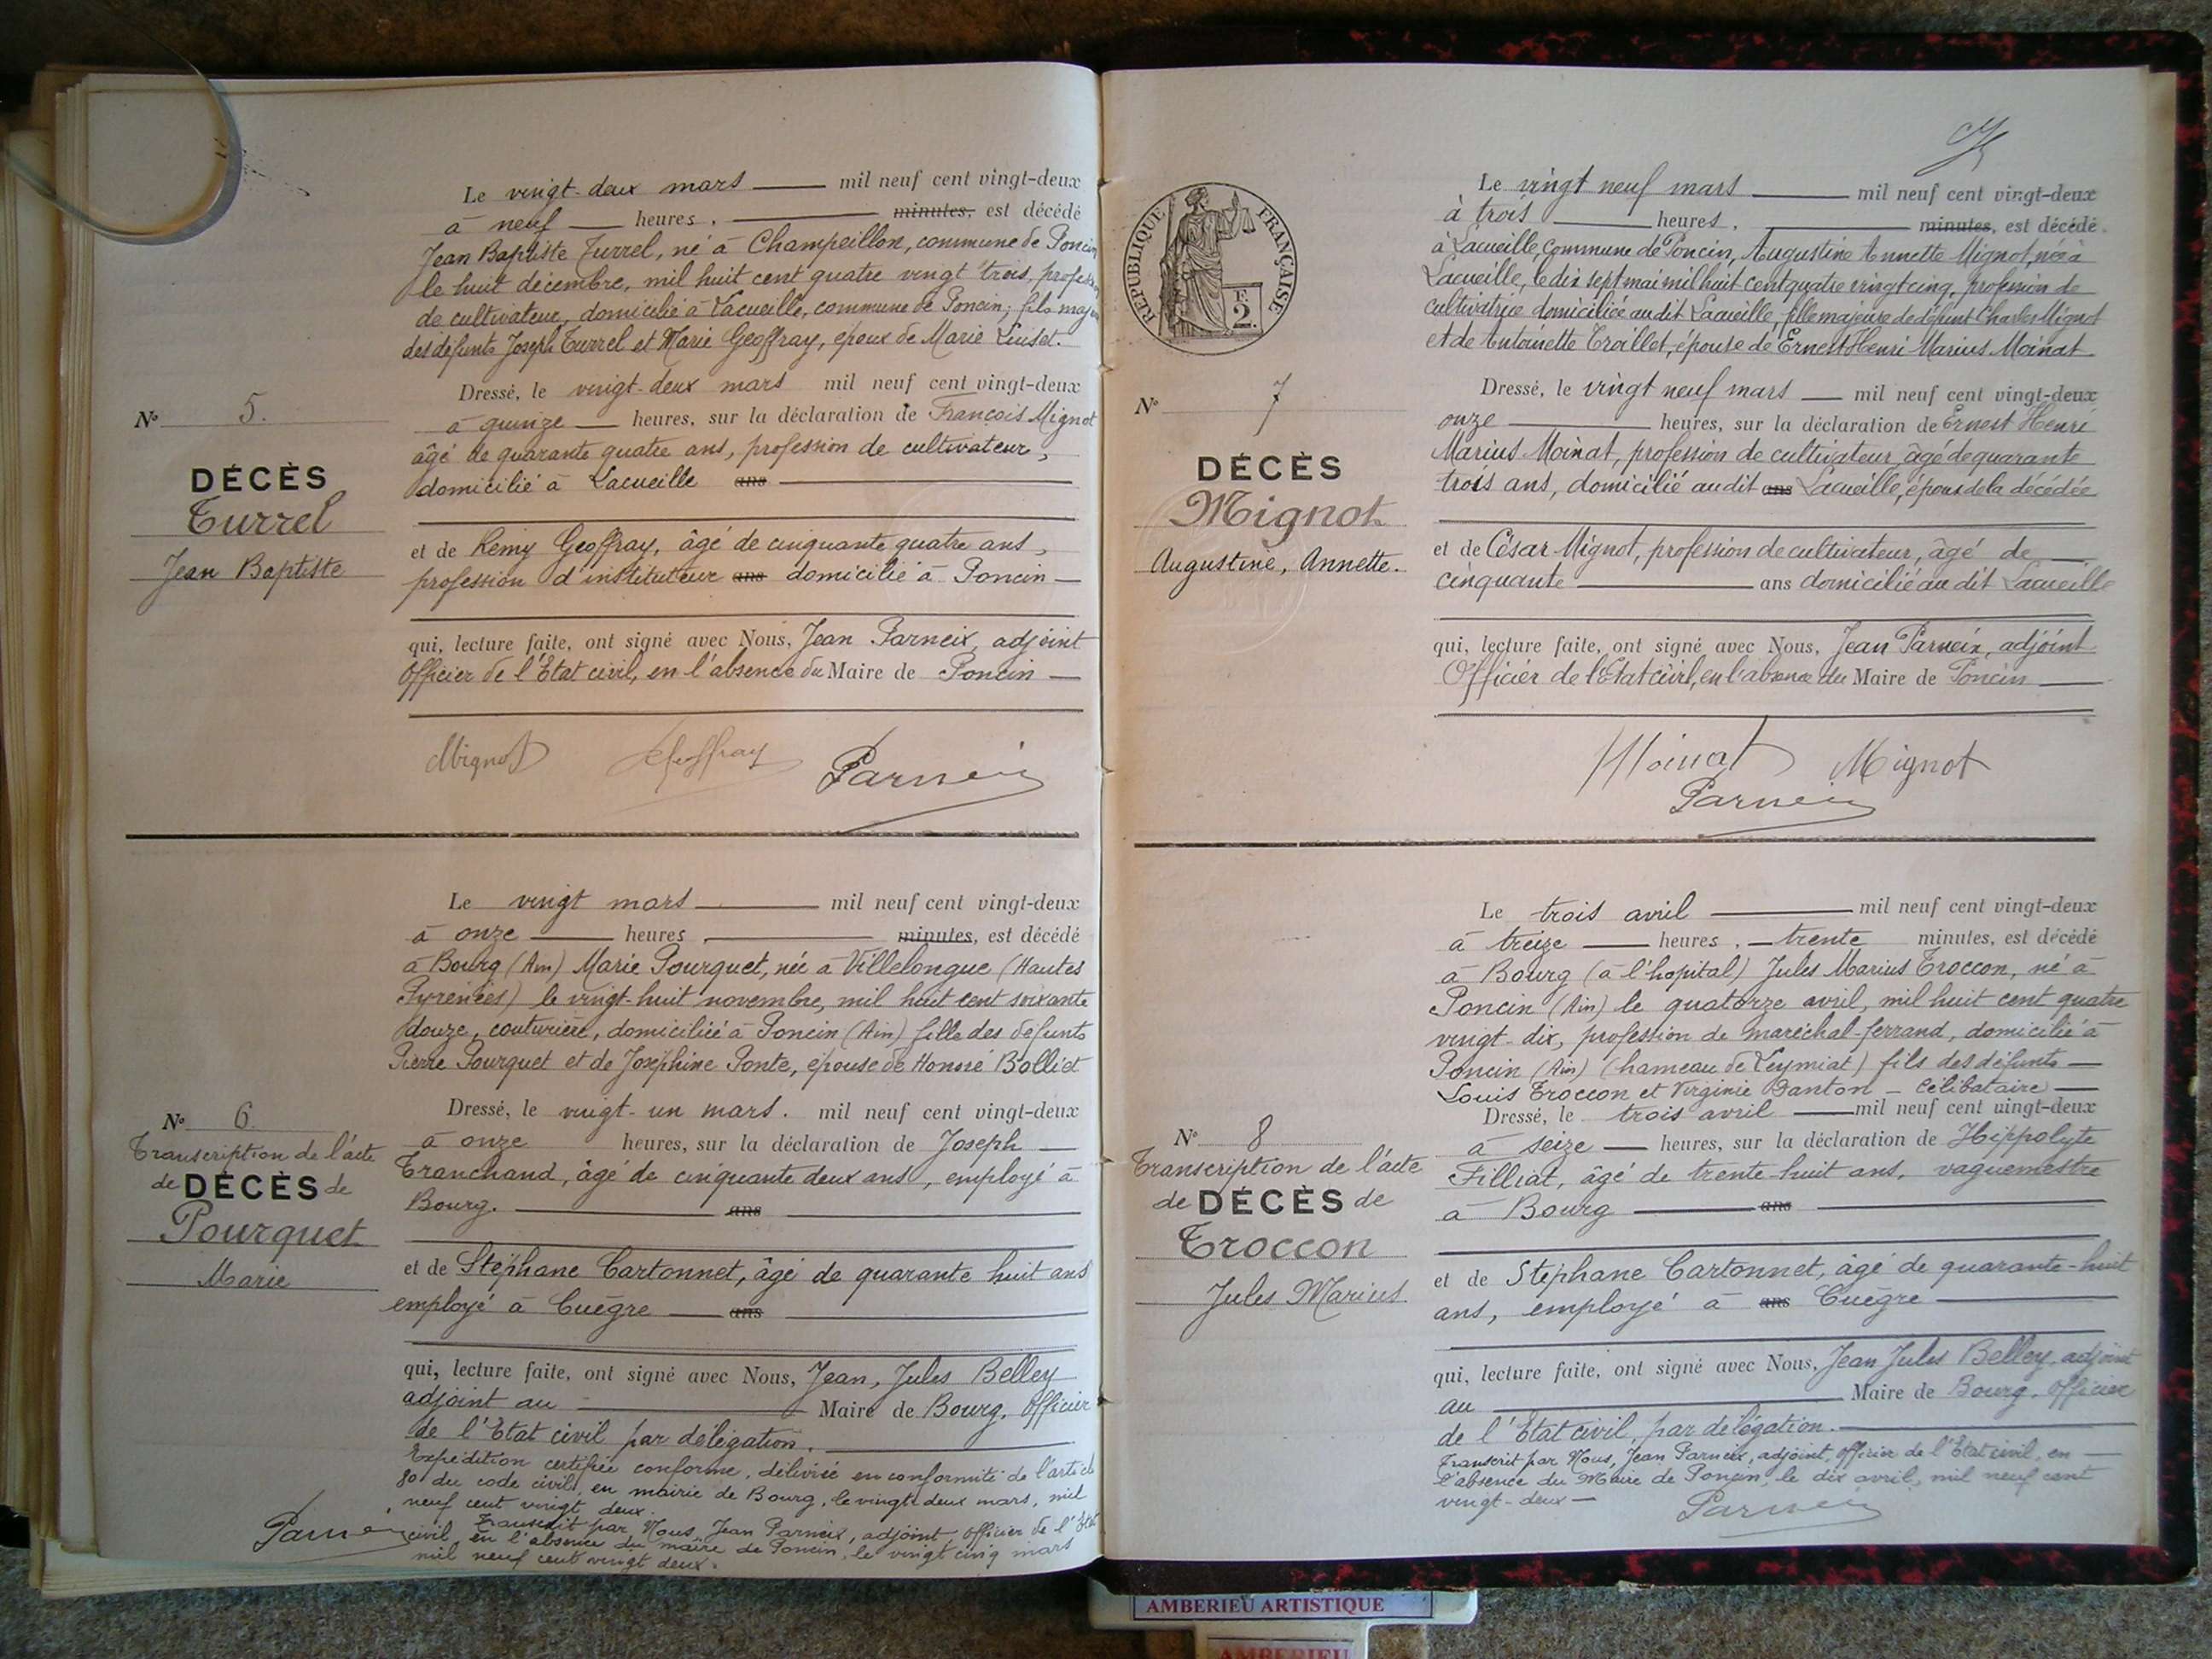 Le vingt-deux mars mil neuf cent vingt-deux
à neuf heures, minutes, est décédé
Jean Baptiste Turrel, né à Champeillon, commune de Poncin
le huit décembre, mil huit cent quatre vingt trois, profession
de cultivateur, domicilié à Lacueille, commune de Poncin; fils majeur
des défunts Joseph Turrel et Marie Geoffray, époux de Marie Luiset.
Dressé, le vingt-deux mars mil neuf cent vingt-deux
à quinze heures, sur la déclaration de François Mignot
âgé de quarante quatre ans, profession de cultivateur,
domicilié à Lacueille ans
et de Rémy Geoffray, âgé de cinquante quatre ans,
profession d'instituteur ans domicilié à Poncin
qui, lecture faite, ont signé avec Nous, Jean Parneix, adjoint
Officier de l'Etat civil, en l'absence du Maire de Poncin
Mignot Geoffray Parneix
N° 5.
DÉCÈS
Turrel
Jean Baptiste
Le vingt mars mil neuf cent vingt-deux
à onze heures, minutes, est décédé
à Bourg (Ain) Marie Pourquet, née à Villelongue (Hautes
Pyrénées) le vingt-huit novembre, mil huit cent soixante
douze, couturière, domiciliée à Poncin (Ain) fille des défunts
Pierre Pourquet et de Joséphine Ponte, épouse de Honoré Bolliet
Dressé, le vingt-un mars. mil neuf cent vingt-deux
à onze heures, sur la déclaration de Joseph
Tranchand, âgé de cinquante deux ans, employé à
Bourg. ans
et de Stéphane Cartonnet, âgé de quarante huit ans
employé à Cuègre ans
qui, lecture faite, ont signé avec Nous, Jean, Jules Belley
adjoint au Maire de Bourg, Officier
de l'Etat civil par délégation.
Expédition certifiée conforme, délivrée en conformité de l'article
80 du code civil, en mairie de Bourg, le vingt deux mars, mil
neuf cent vingt deux.
Transcrit par Nous, Jean Parneix, adjoint, officier de l'Etat
civil, en l'absence du maire de Poncin, le vingt cinq mars
mil neuf cent vingt deux.
Parneix
N° 6.
Transcription de l'acte
de DÉCÈS de
Pourquet
Marie
RÉPUBLIQUE FRANÇAISE
F.
2.
Le vingt neuf mars mil neuf cent vingt-deux
à trois heures, minutes, est décédé
à Lacueille, commune de Poncin, Augustine Annette Mignot, née à
Lacueille, le dix sept mai mil huit cent quatre vingt cinq, profession de
cultivatrice domiciliée au dit Lacueille, fille majeure de défunt Charles Mignot
et de Antoinette Troillet, épouse de Ernest Henri Marius Moinat
Dressé, le vingt neuf mars mil neuf cent vingt-deux
onze heures, sur la déclaration de Ernest Henri
Marius Moinat, profession de cultivateur âgé de quarante
trois ans, domicilié audit ans Lacueille, époux de la décédée
et de César Mignot, profession de cultivateur, âgé de
cinquante ans domicilié au dit Lacueille
qui, lecture faite, ont signé avec Nous, Jean Parneix, adjoint
Officier de l'Etat civil, en l'absence du Maire de Poncin
Moinat Mignot
Parneix
N° 7
DÉCÈS
Mignot
Augustine, Annette.
Le trois avril mil neuf cent vingt-deux
à treize heures, trente minutes, est décédé
à Bourg (à l'hopital) Jules Marius Troccon, né à
Poncin (Ain) le quatorze avril, mil huit cent quatre
vingt-dix, profession de maréchal-ferrand, domicilié à
Poncin (Ain) (hameau de Leymiat) fils des défunts
Louis Troccon et Virginie Banton - célibataire
Dressé, le trois avril mil neuf cent vingt-deux
à seize heures, sur la déclaration de Hippolyte
Filliat, âgé de trente-huit ans, vaguemestre
à Bourg ans
et de Stéphane Cartonnet, âgé de quarante-huit
ans, employé à ans Cuègre
qui, lecture faite, ont signé avec Nous, Jean Jules Belley, adjoint
au Maire de Bourg, officier
de l'Etat civil, par délégation.
Transcrit par Nous, Jean Parneix, adjoint, officier de l'Etat civil, en
l'absence du Maire de Poncin, le dix avril, mil neuf cent
vingt-deux
Parneix
N° 8
Transcription de l'acte
de DÉCÈS de
Troccon
Jules Marius
AMBERIEU ARTISTIQUE
AMBERIEU